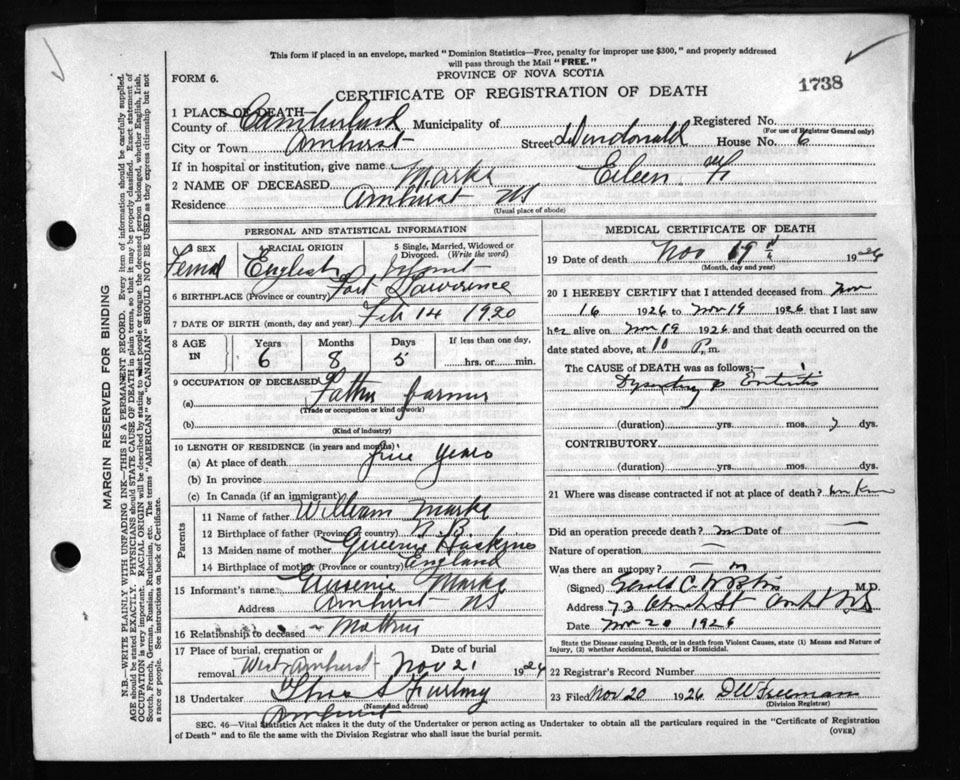 This form if placed in an envelope, marked "Dominion Statistics—Free, penalty for improper use $300," and properly addressed
will pass through the Mail "FREE."
FORM 6.
PROVINCE OF NOVA SCOTIA
CERTIFICATE OF REGISTRATION OF DEATH
1738
1 PLACE OF DEATH
County of Cumberland Municipality of Registered No.
(For use of Registrar General only)
City or Town Amherst Street House No. 6
If in hospital or institution, give name
2 NAME OF DECEASED Marks Eileen
Residence Amherst NS
(Usual place of abode)
PERSONAL AND STATISTICAL INFORMATION
3 SEX 4 RACIAL ORIGIN 5 Single, Married, Widowed or Divorced. (Write the word)
Femal English
6 BIRTHPLACE (Province or country) Fort Lawrence
7 DATE OF BIRTH (month, day and year) Feb 14 1920
8 AGE IN Years Months Days If less than one day,
6 8 5 hrs. or min.
9 OCCUPATION OF DECEASED Father farmer
(a)
(Trade or occupation or kind of work)
(b)
(Kind of industry)
10 LENGTH OF RESIDENCE (in years and months)
(a) At place of death five years
(b) In province
(c) In Canada (if an immigrant)
Parents
11 Name of father William Marks
12 Birthplace of father (Province or country)
13 Maiden name of mother
14 Birthplace of mother (Province or country) England
15 Informant's name Marks
Address Amherst NS
16 Relationship to deceased Mother
17 Place of burial, cremation or removal West Amherst Nov 21 1926
18 Undertaker
(Name and address)
Amherst
MEDICAL CERTIFICATE OF DEATH
19 Date of death Nov 19 1926
(Month, day and year)
20 I HEREBY CERTIFY that I attended deceased from Nov
16 1926 to Nov 19 1926 that I last saw
her alive on Nov 19 1926 and that death occurred on
date stated above, at 10 P. m.
The CAUSE OF DEATH was as follows:—
Dysentery Enteritis
(duration) yrs. mos. 7 dys.
CONTRIBUTORY
(duration) yrs. mos. dys.
21 Where was disease contracted if not at place of death?
Did an operation precede death? no Date of
Nature of operation
Was there an autopsy? no
(Signed) Gerald C. M.D.
Address 73 Church St
Date Nov 20 1926
State the Disease causing Death, or in death from Violent Causes, state (1) Means and Nature of
Injury, (2) whether Accidental, Suicidal or Homicidal.
22 Registrar's Record Number
23 Filed Nov 20 1926 DW Freeman
(Division Registrar)
SEC. 46—Vital Statistics Act makes it the duty of the Undertaker or person acting as Undertaker to obtain all the particulars required in the "Certificate of Registration
of Death" and to file the same with the Division Registrar who shall issue the burial permit.
(OVER)
MARGIN RESERVED FOR BINDING
N.B.—WRITE PLAINLY WITH UNFADING INK—THIS IS A PERMANENT RECORD. Every item of information should be carefully supplied.
AGE should be stated EXACTLY. PHYSICIANS should STATE CAUSE OF DEATH in plain terms, so that it may be properly classified. Exact statement of
OCCUPATION is very important. RACIAL ORIGIN will be described by stating to what people or tongue the deceased person belonged, whether English, Irish,
Scotch, French, German, Russian, Ruthenian, etc. The terms "AMERICAN" or "CANADIAN" SHOULD NOT BE USED as they express citizenship but not
a race or people. See instructions on back of Certificate.